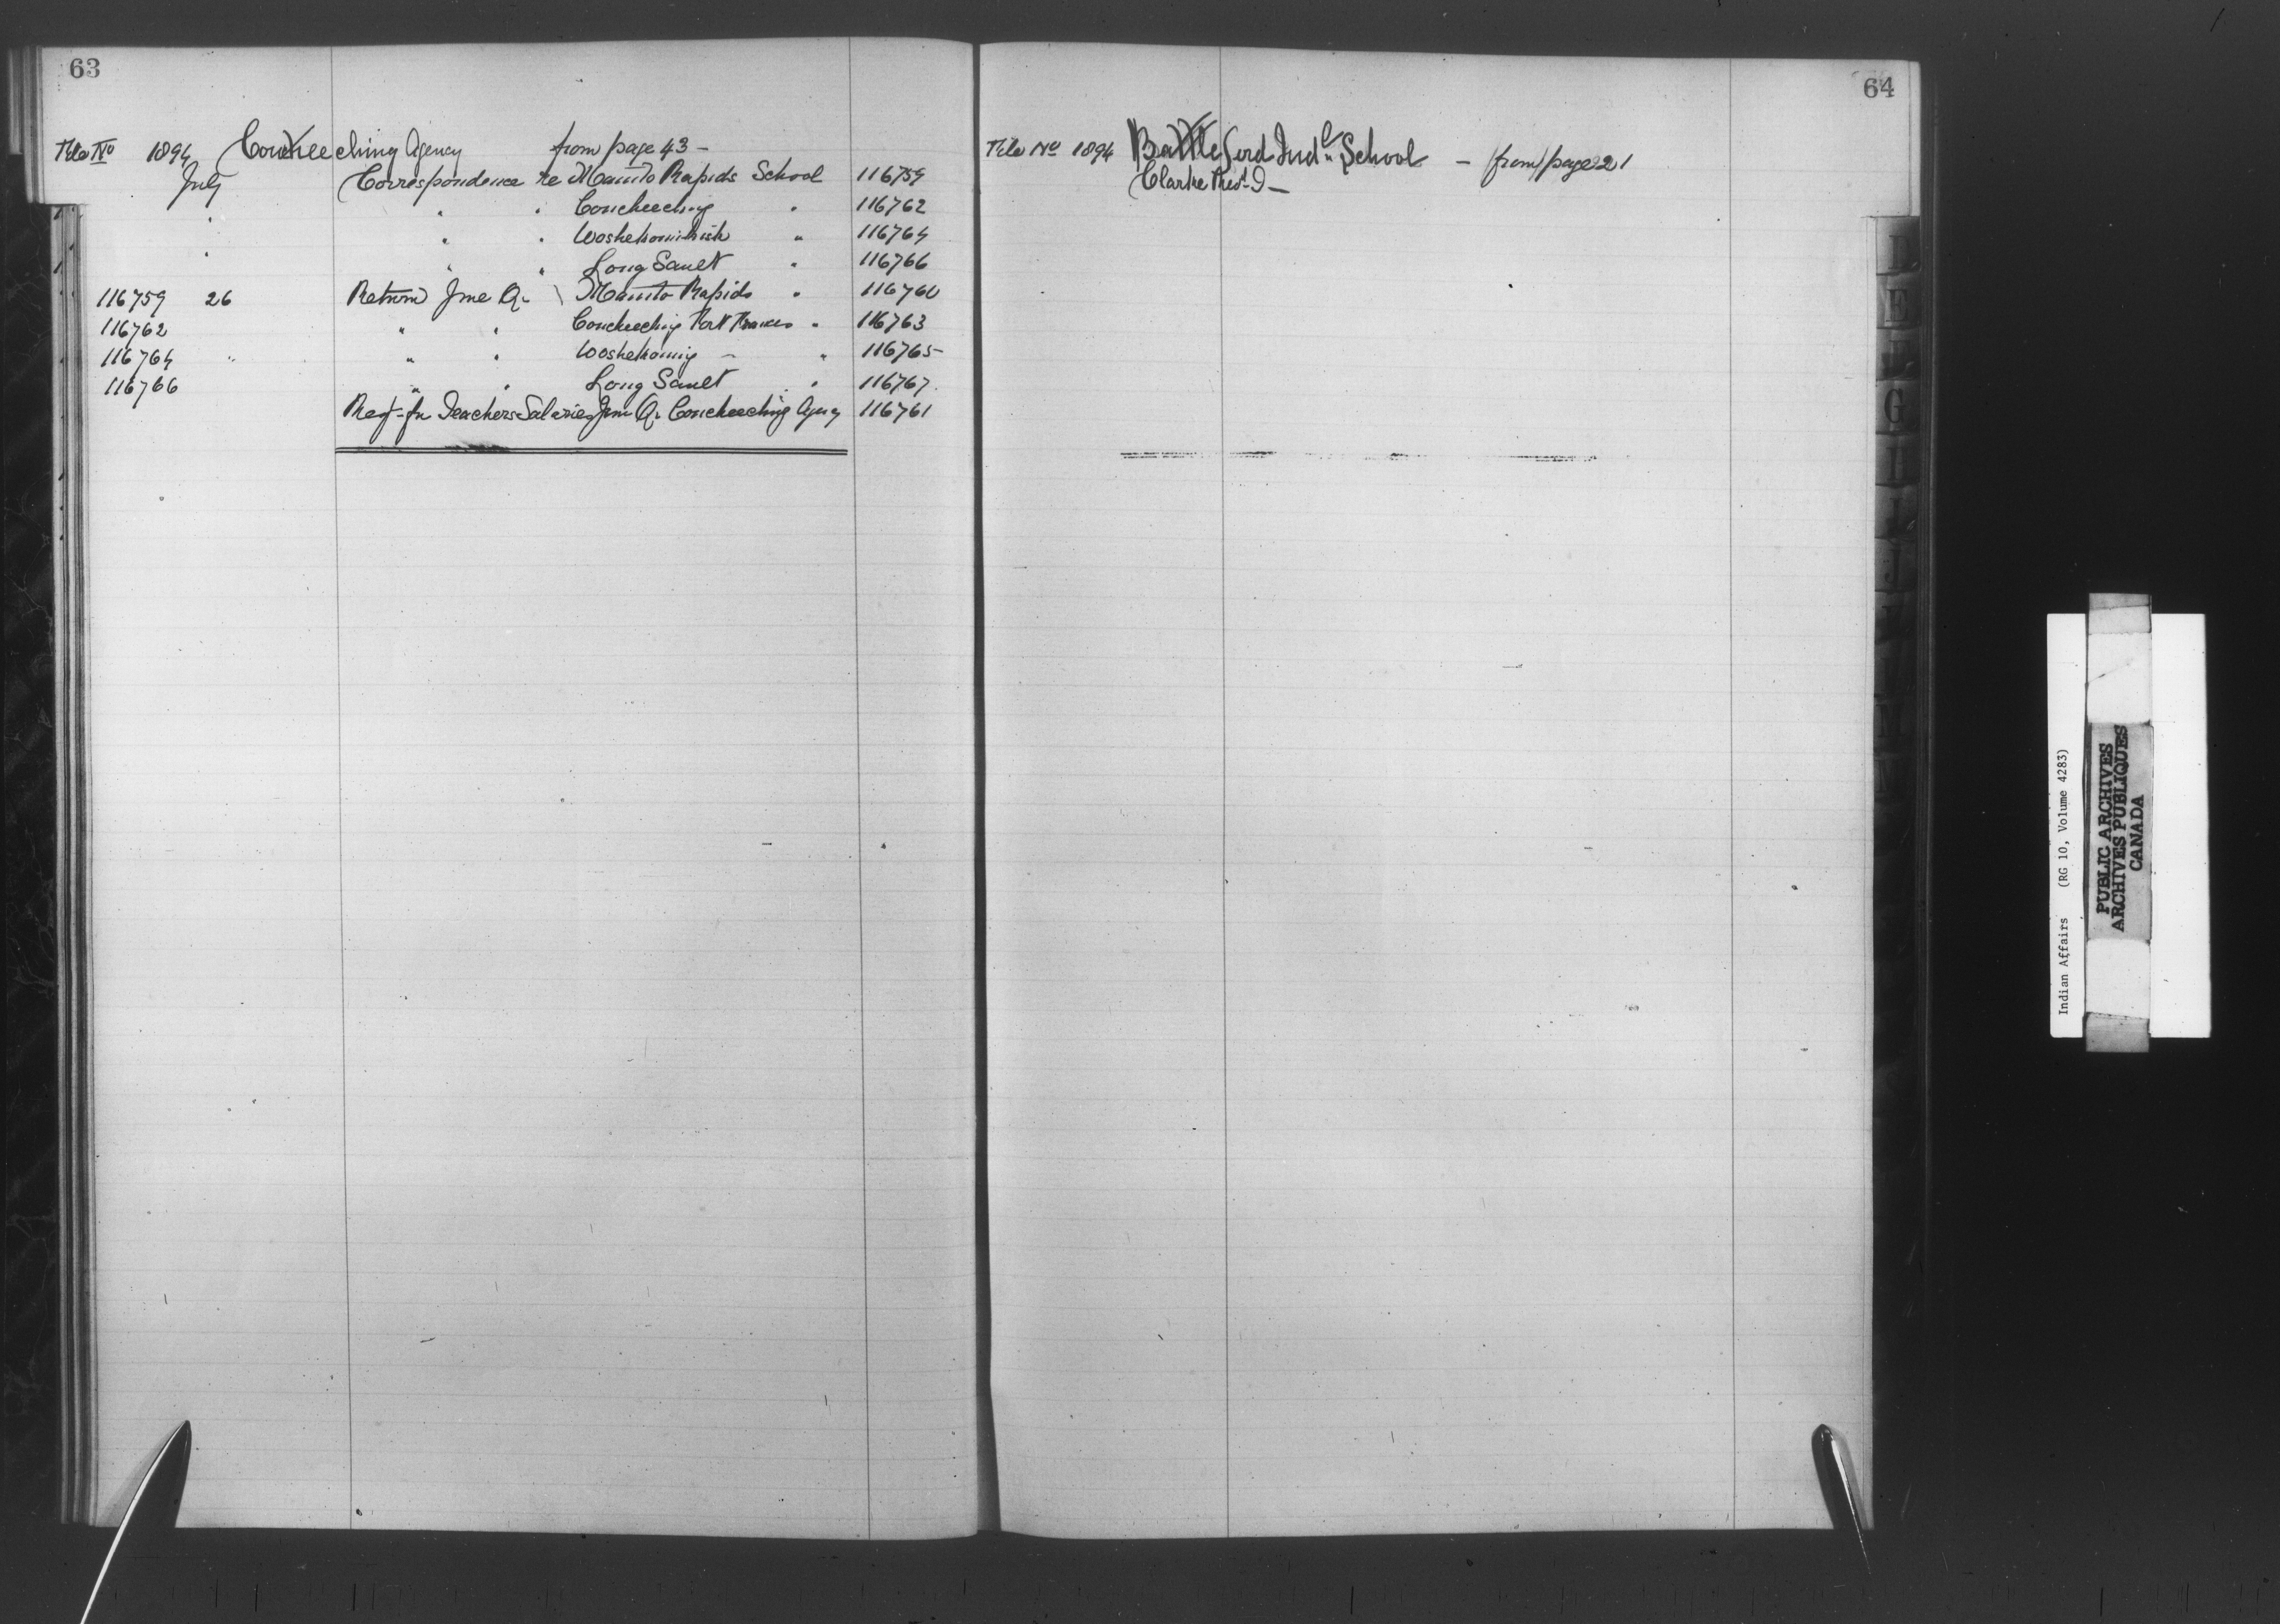 63
File No 1894 Coucheeching Agency from page 43 -
July Correspondence re Manito Rapids School 116759
" " " Coucheeching " 116762
" " " Woshekoinihish " 116764
" " Long Sault " 116766
116759 26 Return June Qr Manito Rapids " 116760
116762 " " Coucheeching Fort Frances " 116763
116764 " " " Woshekonig " " 116765
116766 " " Long Sault " 116767
Req. for Teachers Salaries June Qr Coucheeching Agency 116761
64
File No 1894 Battleford Indl School - from page 21
Clarke Revd
D
E
G
H
I
J
M
N
Indian Affairs (RG 10, Volume 4283)
PUBLIC ARCHIVES
ARCHIVES PUBLIQUES
CANADA